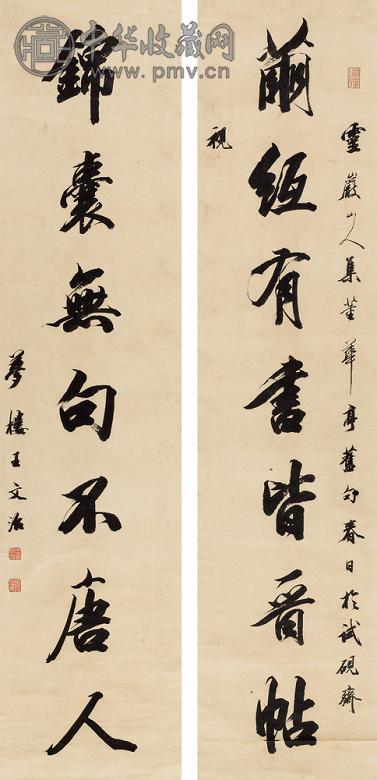 中华收藏网
www.pmv.cn
靈巖山人集董華亭舊句春日於試硯齋
繭紙有書皆晉帖
視
錦囊無句不唐人
夢樓王文治